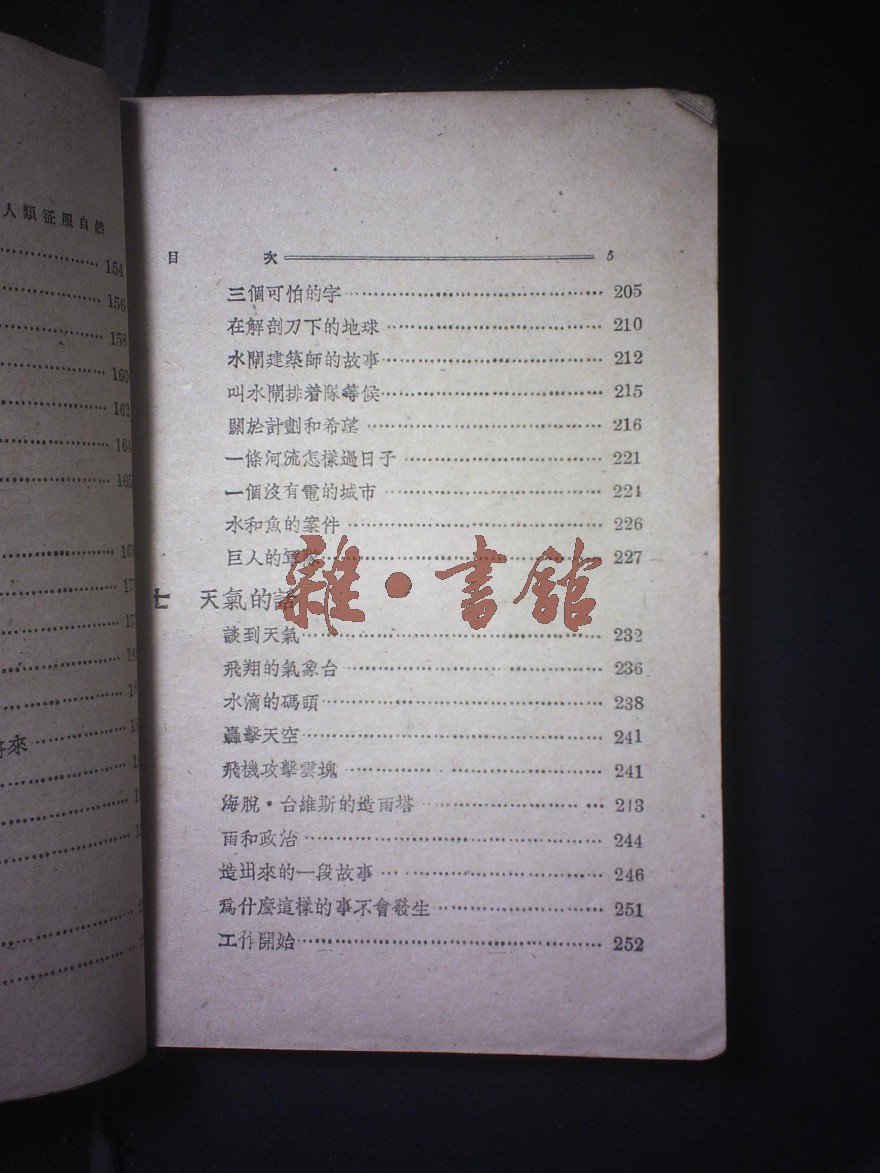 人類征服自然
154
156
158
160
162
164
165
將來
目 次 5
三個可怕的字 205
在解剖刀下的地球 210
水閘建築師的故事 212
叫水閘排着隊等候 215
關於計劃和希望 216
一條河流怎樣過日子 221
一個沒有電的城市 224
水和魚的案件 226
巨人的軍隊 227
七 天氣的話
談到天氣 232
飛翔的氣象台 236
水滴的碼頭 238
轟擊天空 241
飛機攻擊雲塊 241
海脫·台維斯的造雨塔 243
雨和政治 244
造出來的一段故事 246
爲什麼這樣的事不會發生 251
工作開始 252
雜·書館